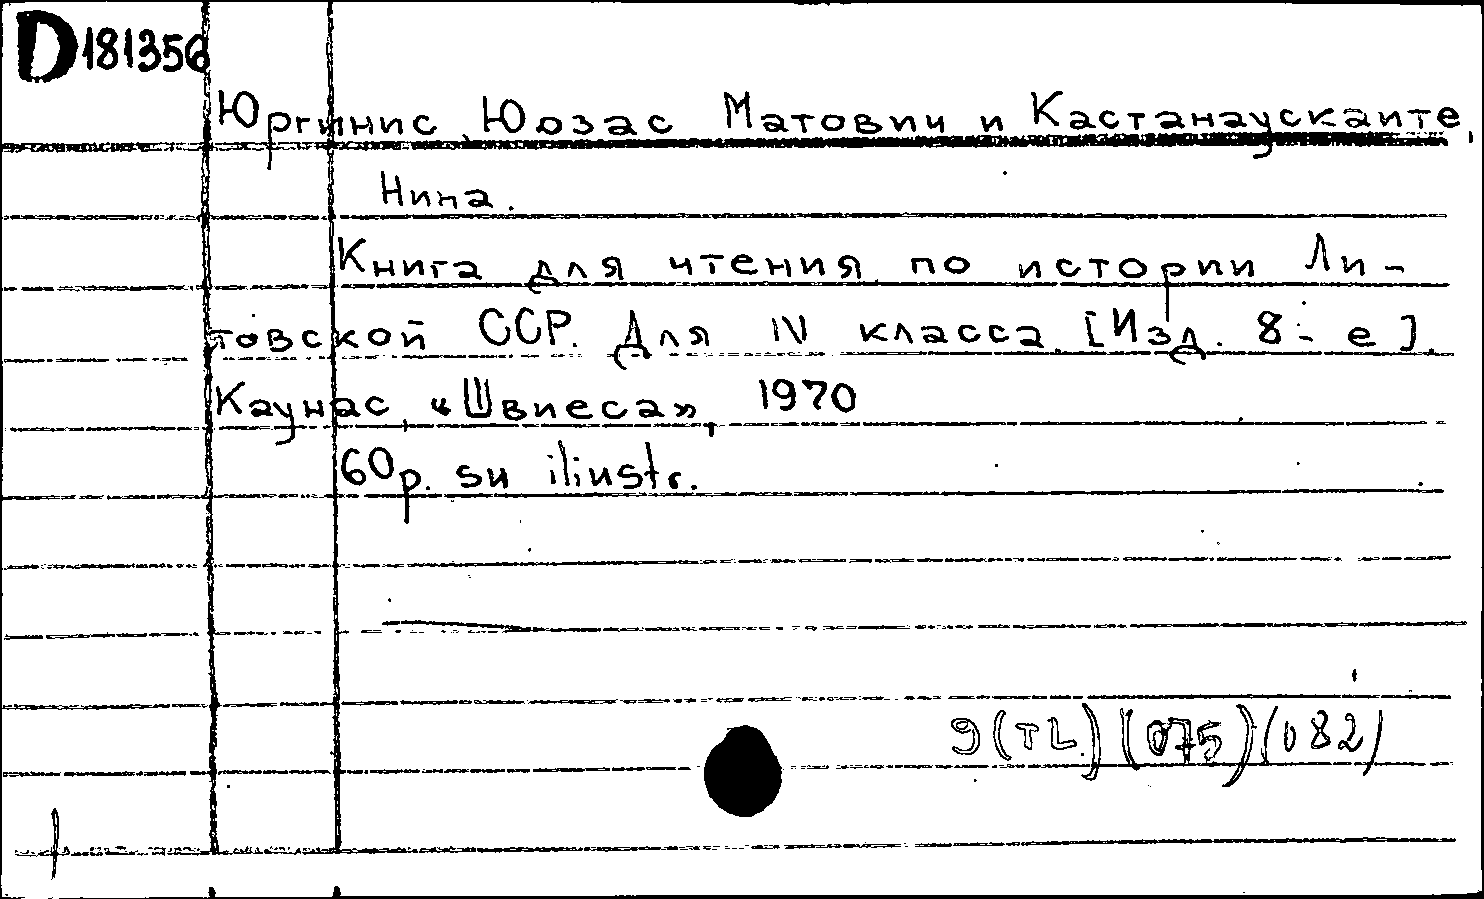 D181356
Юргинис, Юозас Матович и Кастанаускаите,
Нина.
Книга для чтения по истории Ли-
товской ССР. Для IV класса. [Изд. 8-е].
Каунас, «Швиеса», 1970
60p. su iliustr.
9(TL)(075)(082)